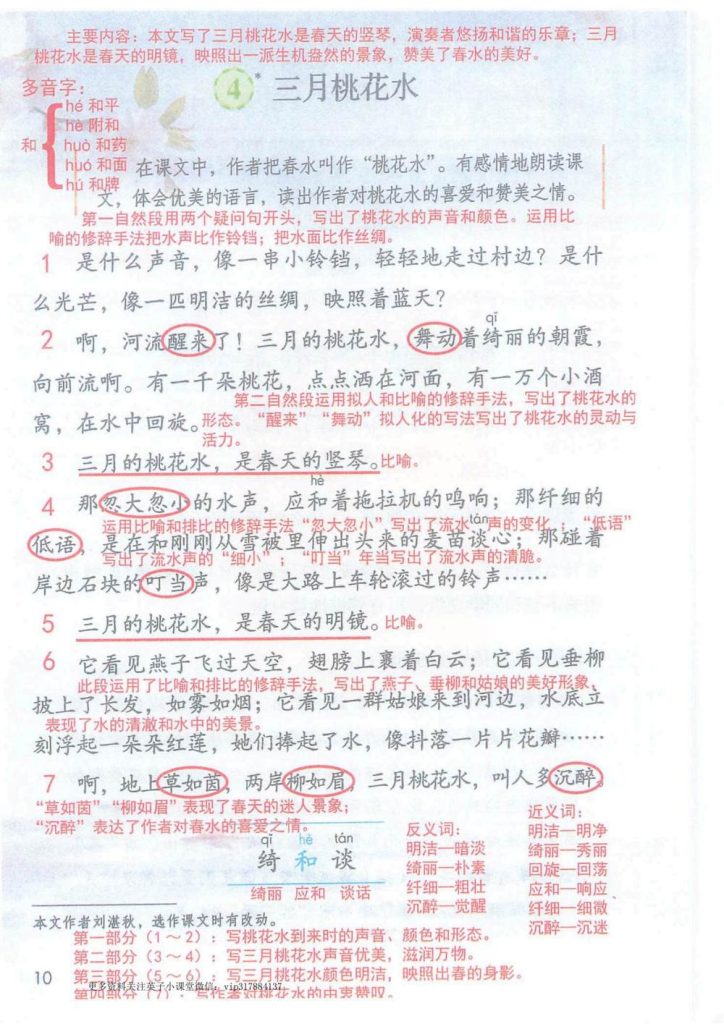 主要内容：本文写了三月桃花水是春天的竖琴，演奏者悠扬和谐的乐章；三月
桃花水是春天的明镜，映照出一派生机盎然的景象，赞美了春水的美好。
4* 三月桃花水
多音字：
和
hé 和平
hè 附和
huò 和药
huó 和面
hú 和牌
在课文中，作者把春水叫作“桃花水”。有感情地朗读课
文，体会优美的语言，读出作者对桃花水的喜爱和赞美之情。
第一自然段用两个疑问句开头，写出了桃花水的声音和颜色。运用比
喻的修辞手法把水声比作铃铛；把水面比作丝绸。
1 是什么声音，像一串小铃铛，轻轻地走过村边？是什
么光芒，像一匹明洁的丝绸，映照着蓝天？
qǐ
2 啊，河流醒来了！三月的桃花水，舞动着绮丽的朝霞，
向前流啊。有一千朵桃花，点点洒在河面，有一万个小酒
第二自然段运用拟人和比喻的修辞手法，写出了桃花水的
窝，在水中回旋。
形态。“醒来”“舞动”拟人化的写法写出了桃花水的灵动与
活力。
3 三月的桃花水，是春天的竖琴。比喻。
hè
4 那忽大忽小的水声，应和着拖拉机的鸣响；那纤细的
运用比喻和排比的修辞手法“忽大忽小”写出了流水声的变化；“低语”
tán
低语，是在和刚刚从雪被里伸出头来的麦苗谈心；那碰着
写出了流水声的“细小”；“叮当”年当写出了流水声的清脆。
岸边石块的叮当声，像是大路上车轮滚过的铃声……
5 三月的桃花水，是春天的明镜。比喻。
6 它看见燕子飞过天空，翅膀上裹着白云；它看见垂柳
此段运用了比喻和排比的修辞手法，写出了燕子、垂柳和姑娘的美好形象、
披上了长发，如雾如烟；它看见一群姑娘来到河边，水底立
表现了水的清澈和水中的美景。
刻浮起一朵朵红莲，她们捧起了水，像抖落一片片花瓣……
7 啊，地上草如茵，两岸柳如眉，三月桃花水，叫人多沉醉。
“草如茵”“柳如眉”表现了春天的迷人景象；
“沉醉”表达了作者对春水的喜爱之情。
qǐ hè tán
绮 和 谈
绮丽 应和 谈话
反义词：
明洁—暗淡
绮丽—朴素
纤细—粗壮
沉醉—觉醒
近义词：
明洁—明净
绮丽—秀丽
回旋—回荡
应和—响应
纤细—细微
沉醉—沉迷
本文作者刘湛秋，选作课文时有改动。
第一部分（1～2）：写桃花水到来时的声音、颜色和形态。
第二部分（3～4）：写三月桃花水声音优美，滋润万物。
第三部分（5～6）：写三月桃花水颜色明洁，映照出春的身影。
10
更多资料关注英子小课堂微信：vip317884137
第四部分（7）：写作者对桃花水的由衷赞叹。